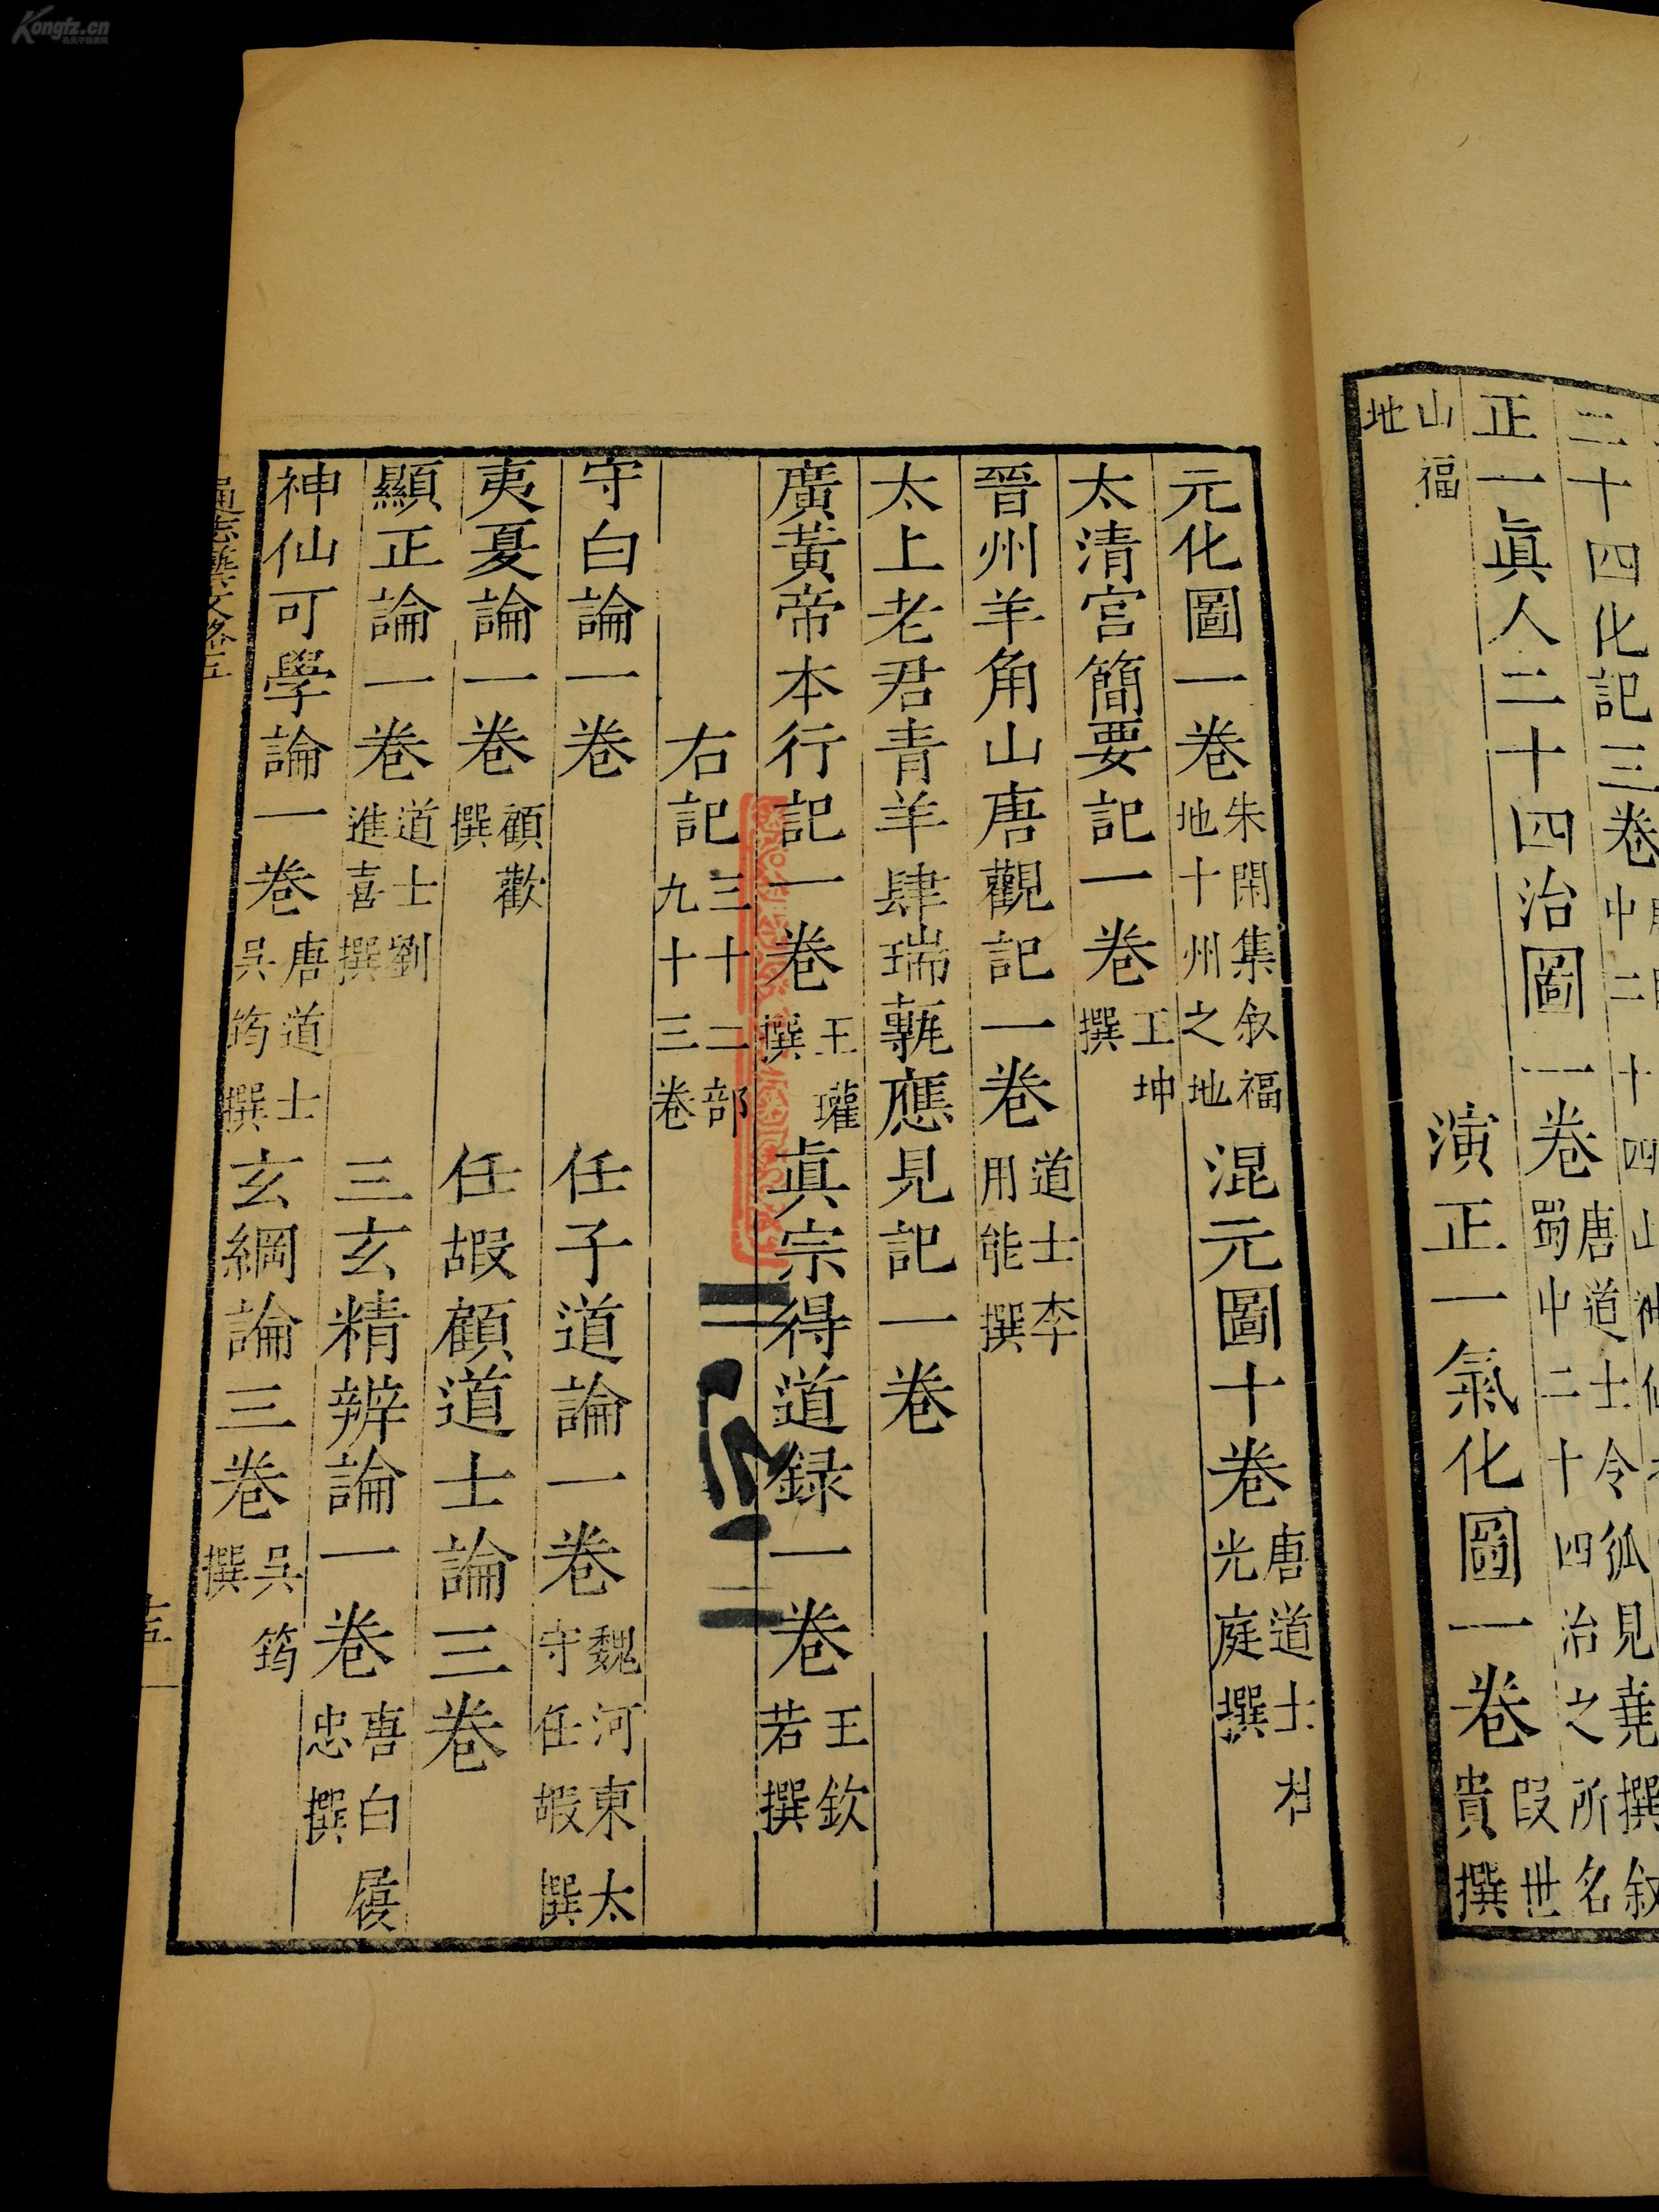 Kongfz.cn
孔夫子旧书网
二十四化記三卷
正一真人二十四治圖一卷唐道士令狐見堯撰叙蜀中二十四治之所名
山福地 演正一氣化圖一卷段世貴撰
元化圖一卷朱閑集叙福地十州之地 混元圖十卷唐道士杜光庭撰
太清宫簡要記一卷王坤撰
晉州羊角山唐觀記一卷道士李用能撰
太上老君青羊肆瑞甎應見記一卷
廣黃帝本行記一卷王瓘撰 真宗得道録一卷王欽若撰
右記三十二部九十三卷
守白論一卷 任子道論一卷魏河東太守任嘏撰
夷夏論一卷顧歡撰 任嘏顧道士論三卷
顯正論一卷道士劉進喜撰 三玄精辨論一卷唐白履忠撰
神仙可學論一卷唐道士吳筠撰 玄綱論三卷吳筠撰
通志藝文略五